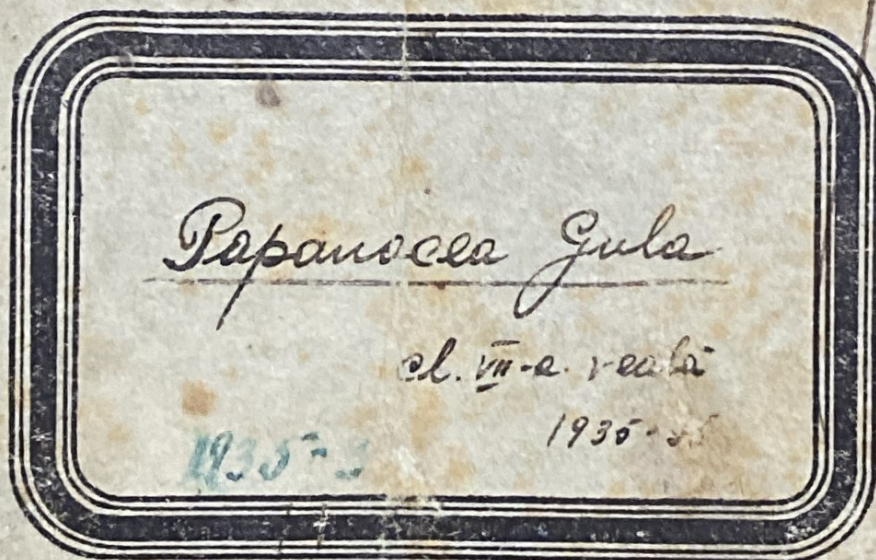 Papanocea Gula
cl. VII-a. reală
1935-36
1935-3